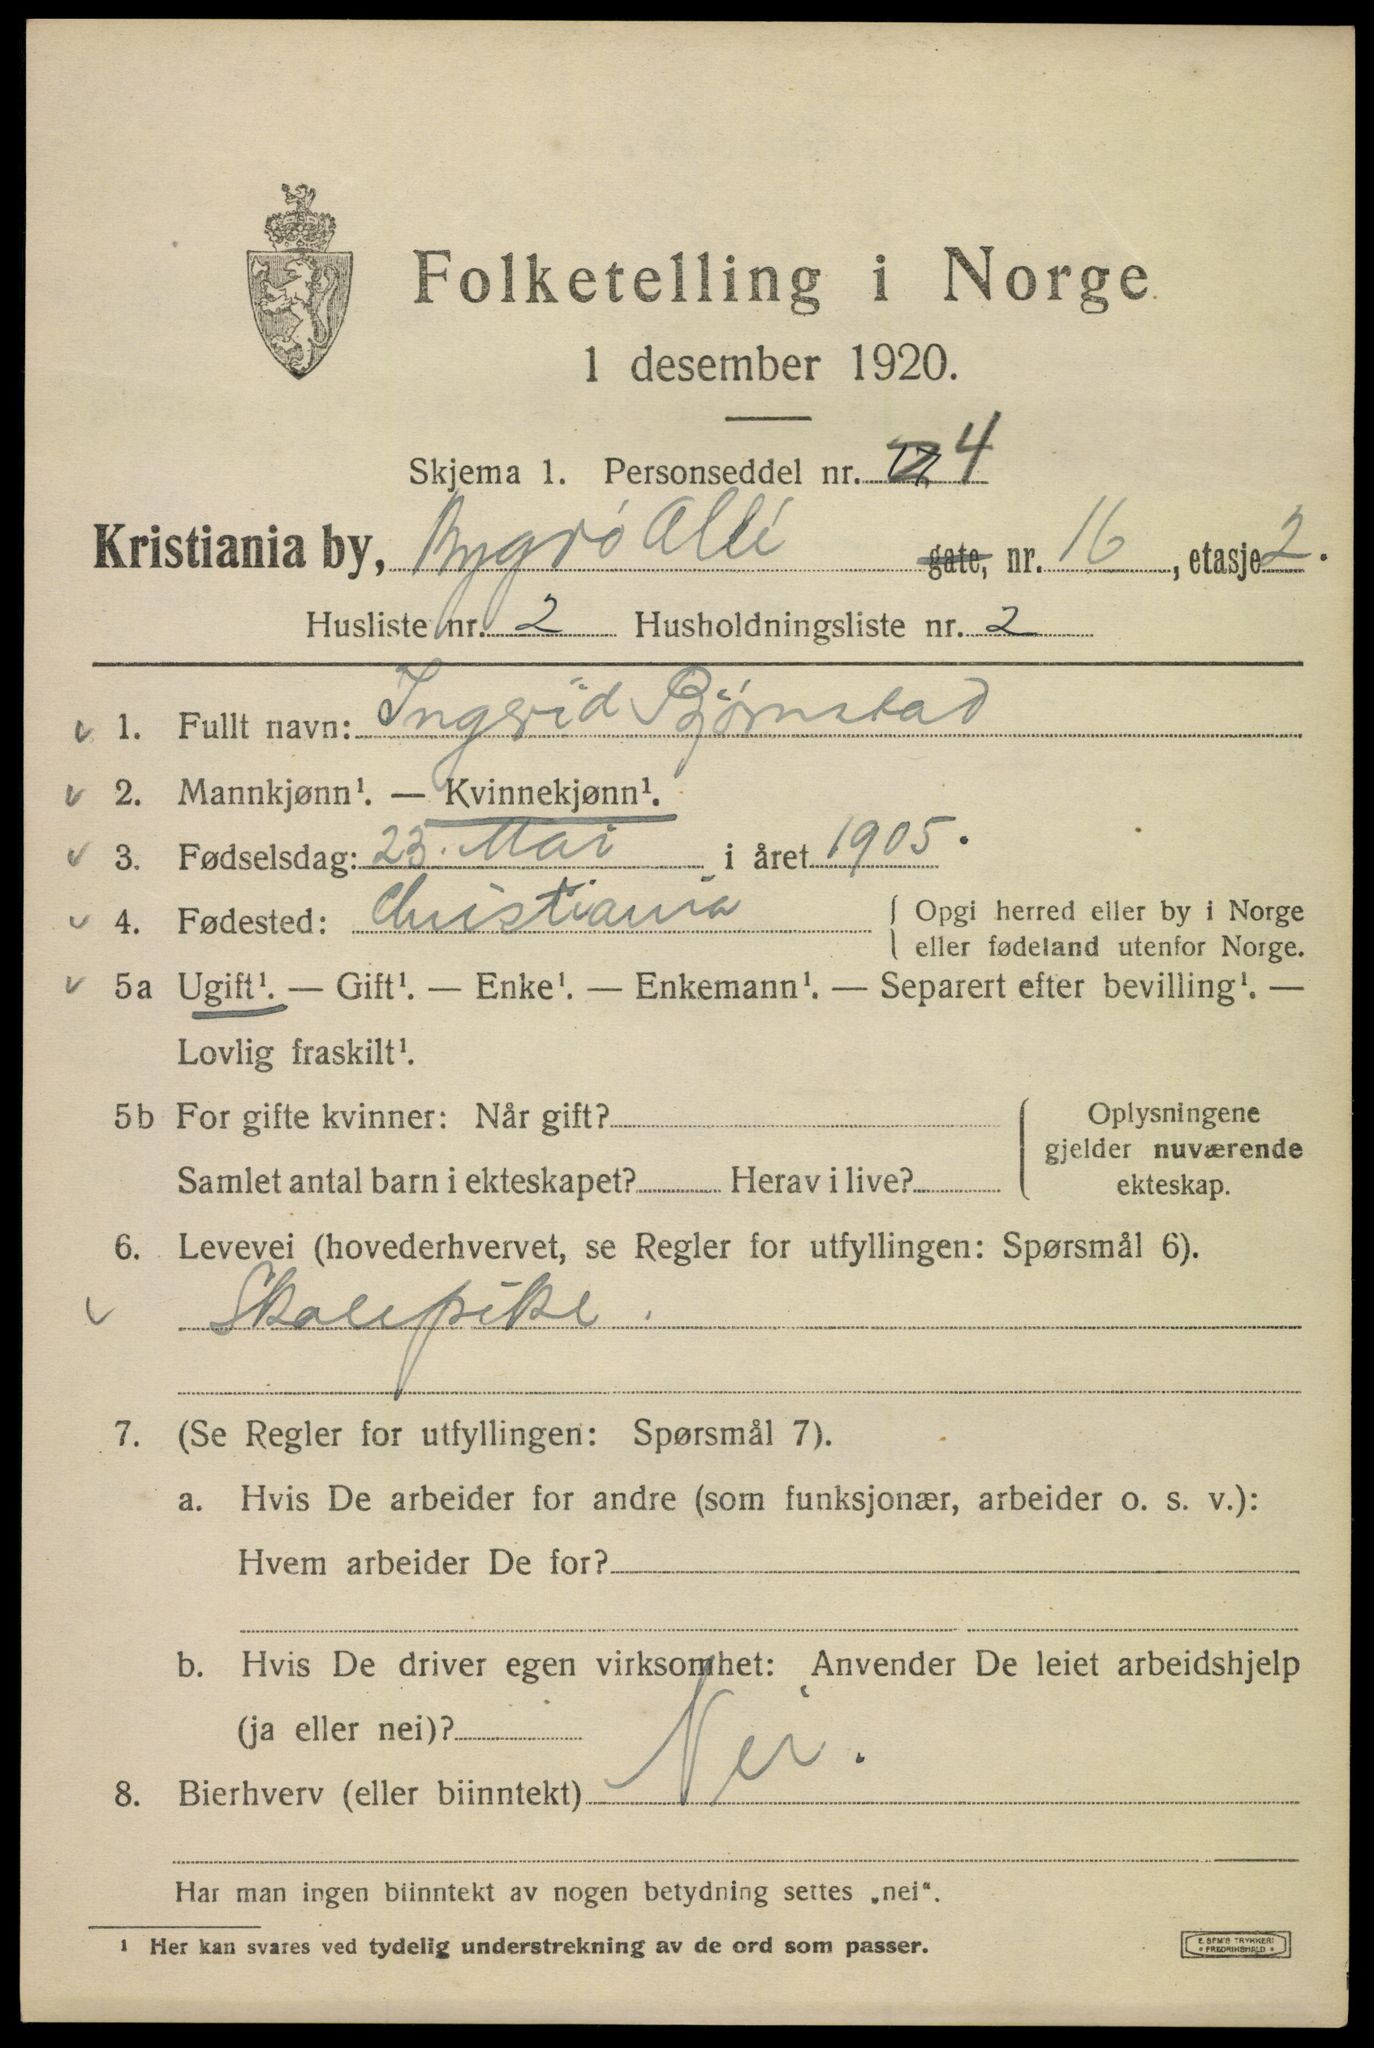 Folketelling i Norge
1 desember 1920.
Skjema 1. Personseddel nr. 4
Kristiania by, Bygdø Allé gate, nr. 16, etasje 2.
Husliste nr. 2 Husholdningsliste nr. 2
1. Fullt navn: Ingrid Bjørnstad
2. Mannkjønn¹. — Kvinnekjønn¹.
3. Fødselsdag: 23. Mai i året 1905.
4. Fødested: Christiania { Opgi herred eller by i Norge
eller fødeland utenfor Norge.
5a Ugift¹. — Gift¹. — Enke¹. — Enkemann¹. — Separert efter bevilling¹. —
Lovlig fraskilt¹.
5b For gifte kvinner: Når gift? Oplysningene
gjelder nuværende
Samlet antal barn i ekteskapet? Herav i live? ekteskap.
6. Levevei (hovederhvervet, se Regler for utfyllingen: Spørsmål 6).
Skolepike.
7. (Se Regler for utfyllingen: Spørsmål 7).
a. Hvis De arbeider for andre (som funksjonær, arbeider o. s. v.):
Hvem arbeider De for?
b. Hvis De driver egen virksomhet: Anvender De leiet arbeidshjelp
(ja eller nei)?
8. Bierhverv (eller biinntekt) Nei.
Har man ingen biinntekt av nogen betydning settes „nei“.
¹ Her kan svares ved tydelig understrekning av de ord som passer.
E. SEM'S TRYKKERI
FREDRIKSHALD